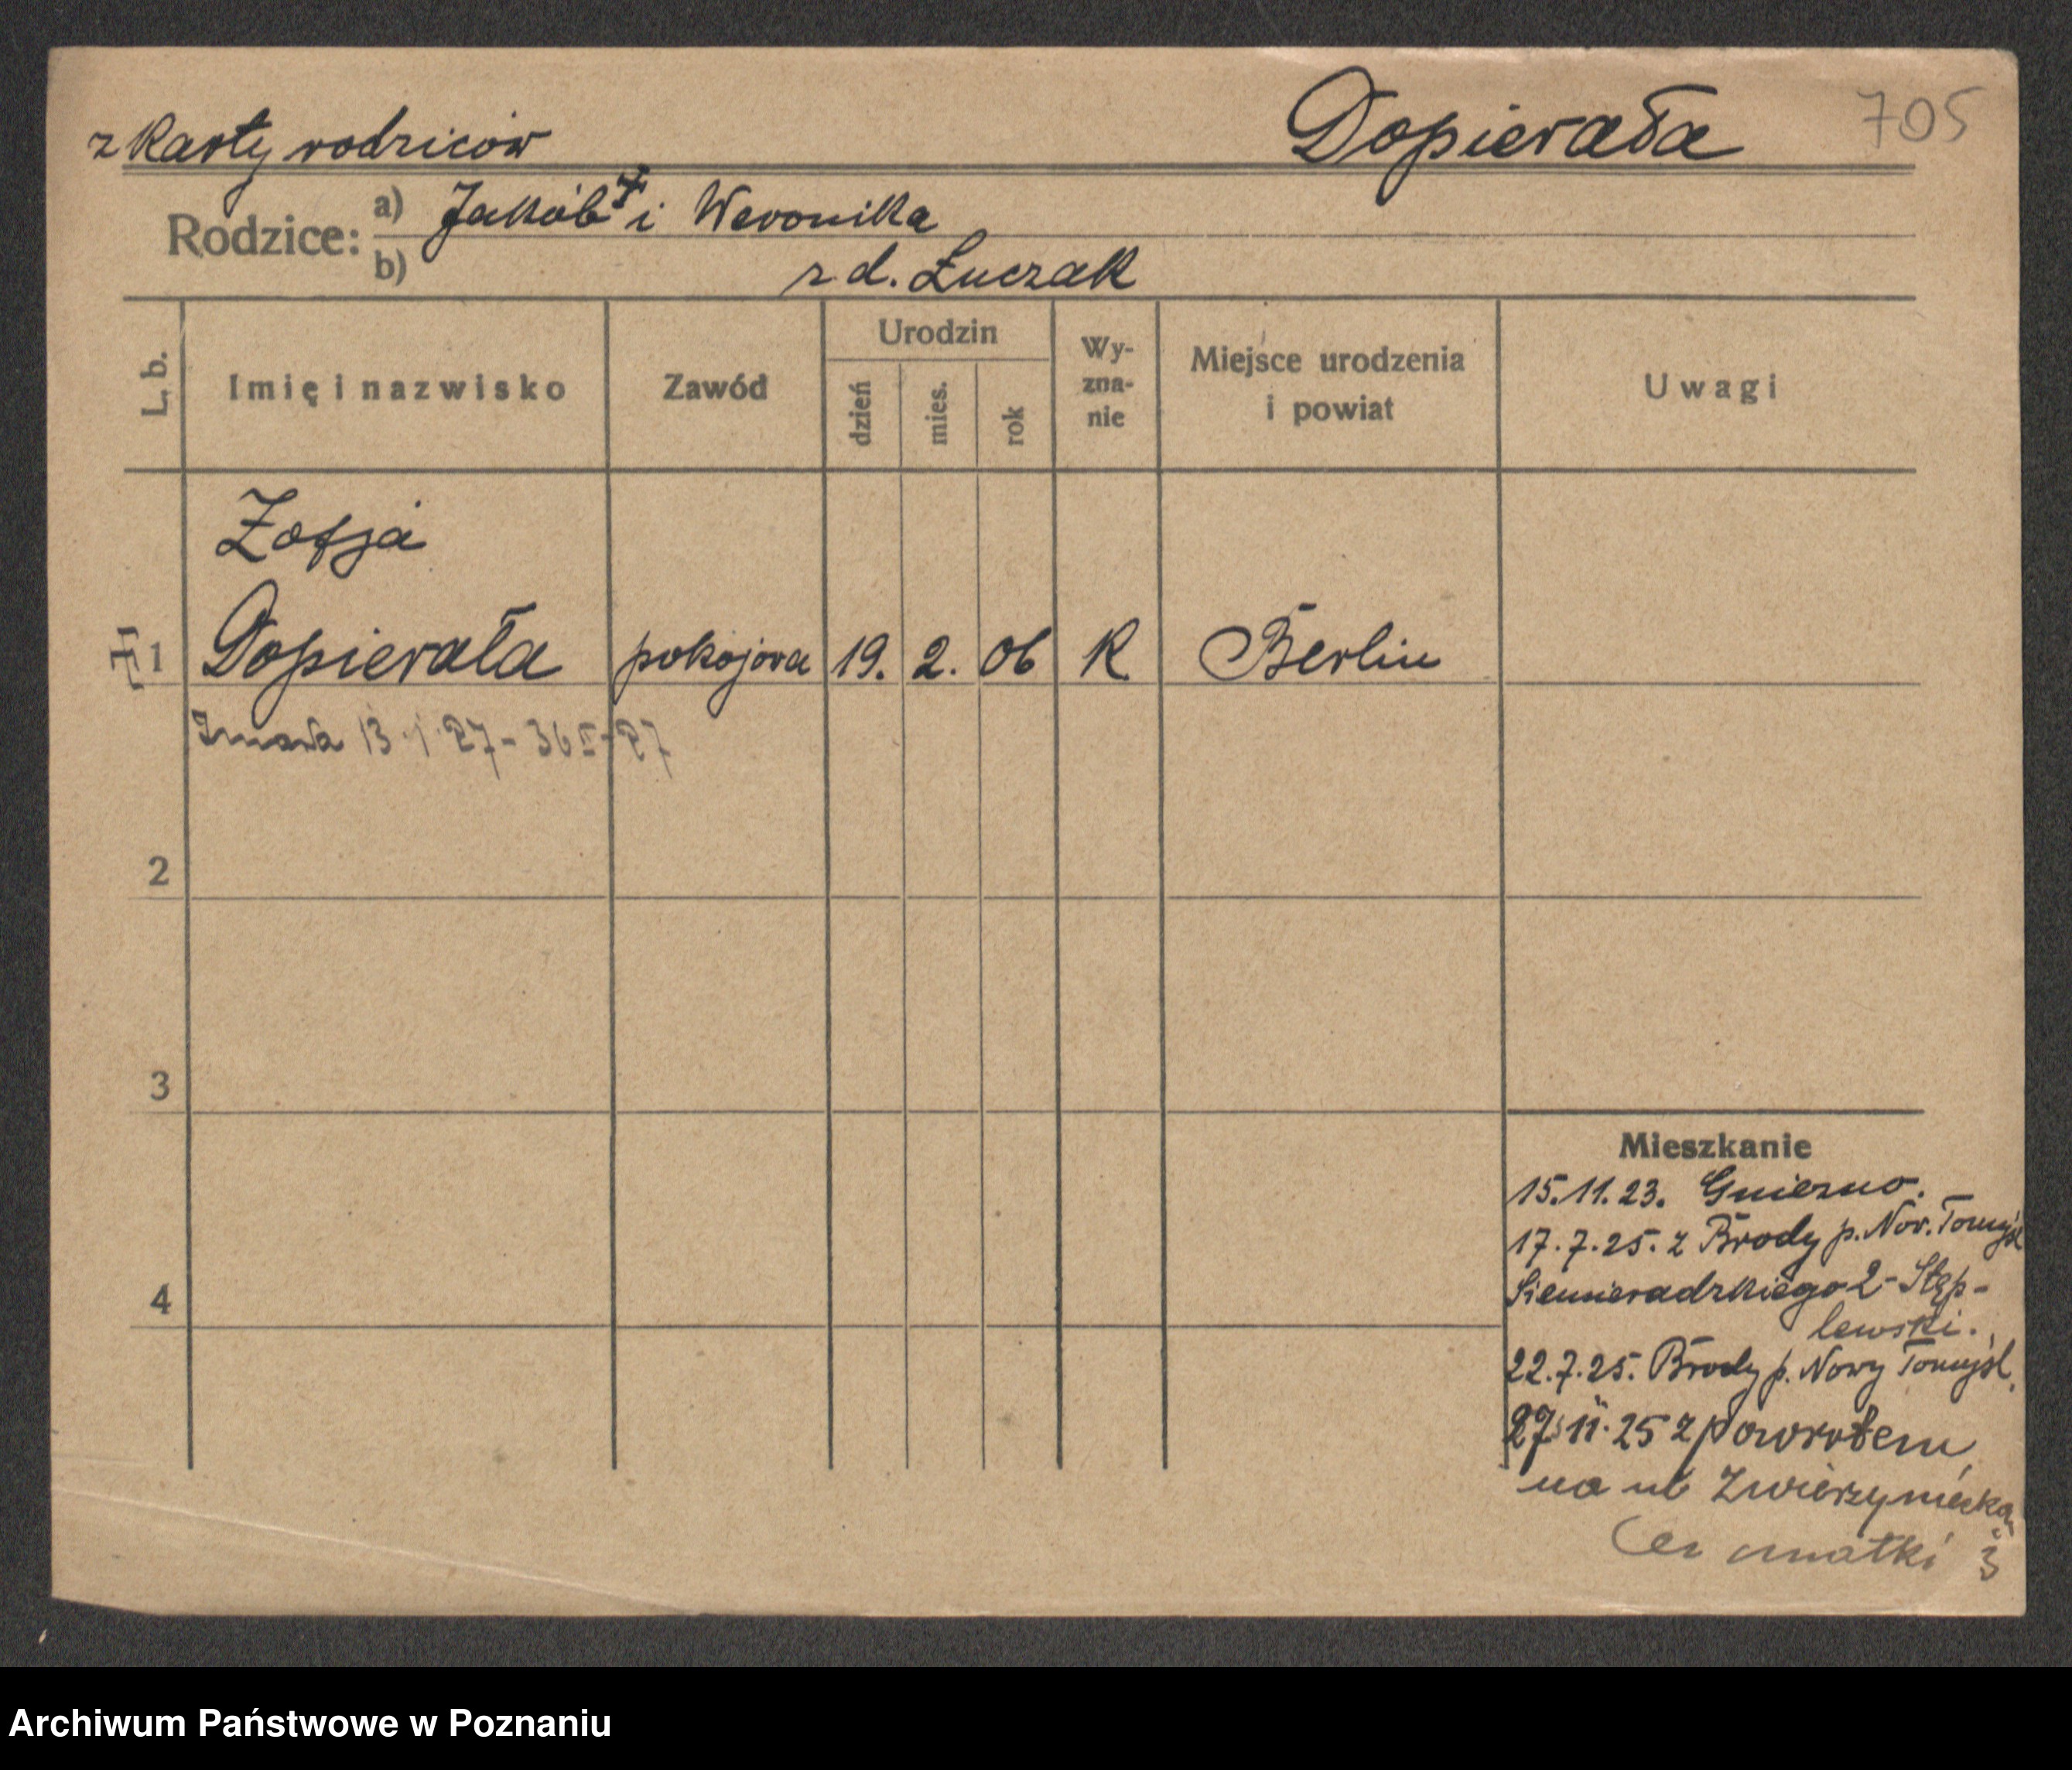 z karty rodziców Dopierała 705
Rodzice: a) Jakób † i Weronika
b) z d. Łuczak
L. b. Imię i nazwisko Zawód Urodzin dzień mies. rok Wy-zna-nie Miejsce urodzenia i powiat Uwagi
Zofja
1 Dopierała pokojowa 19. 2. 06 K Berlin
Zmarła 13.1.27 -
2
3
4
Mieszkanie
15.11.23. Gniezno.
17.7.25. z Brody p. Now. Tomyśl
Siemieradzkiego 2 - Stęp-
lewski.
22.7.25. Brody p. Nowy Tomyśl.
27.11.25 z powrotem
na ul Zwierzyniecką
matki 3
Archiwum Państwowe w Poznaniu